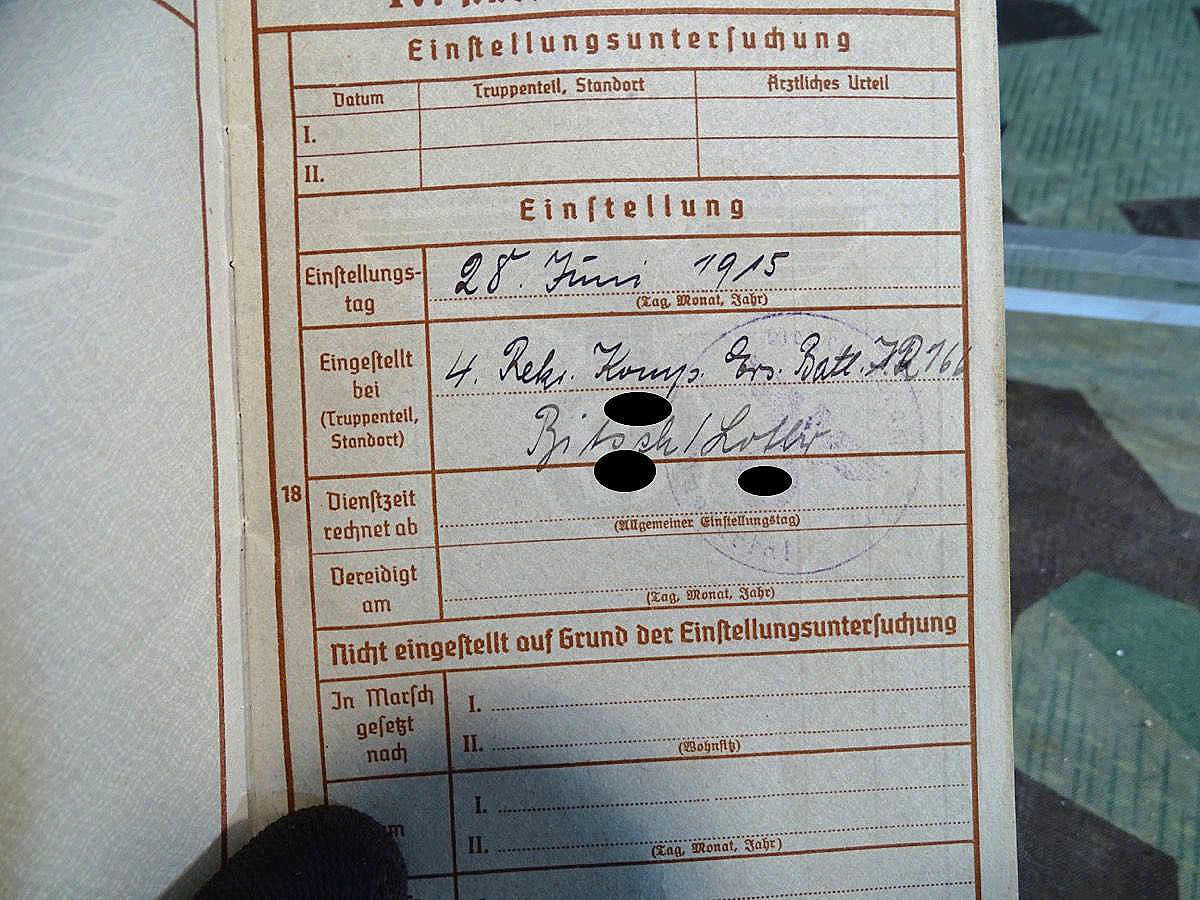 Einstellungsuntersuchung
Datum Truppenteil, Standort Ärztliches Urteil
I.
II.
Einstellung
Einstellungs-
tag
28. Juni 1915
(Tag, Monat, Jahr)
Eingestellt
bei
(Truppenteil,
Standort)
4. Rekr. Komp. Ers. Batl. I.R. 166
Bitsch/Lothr
18
Dienstzeit
rechnet ab
(Allgemeiner Einstellungstag)
Vereidigt
am
(Tag, Monat, Jahr)
Nicht eingestellt auf Grund der Einstellungsuntersuchung
In Marsch
gesetzt
nach
I.
II.
(Wohnsitz)
I.
II.
(Tag, Monat, Jahr)